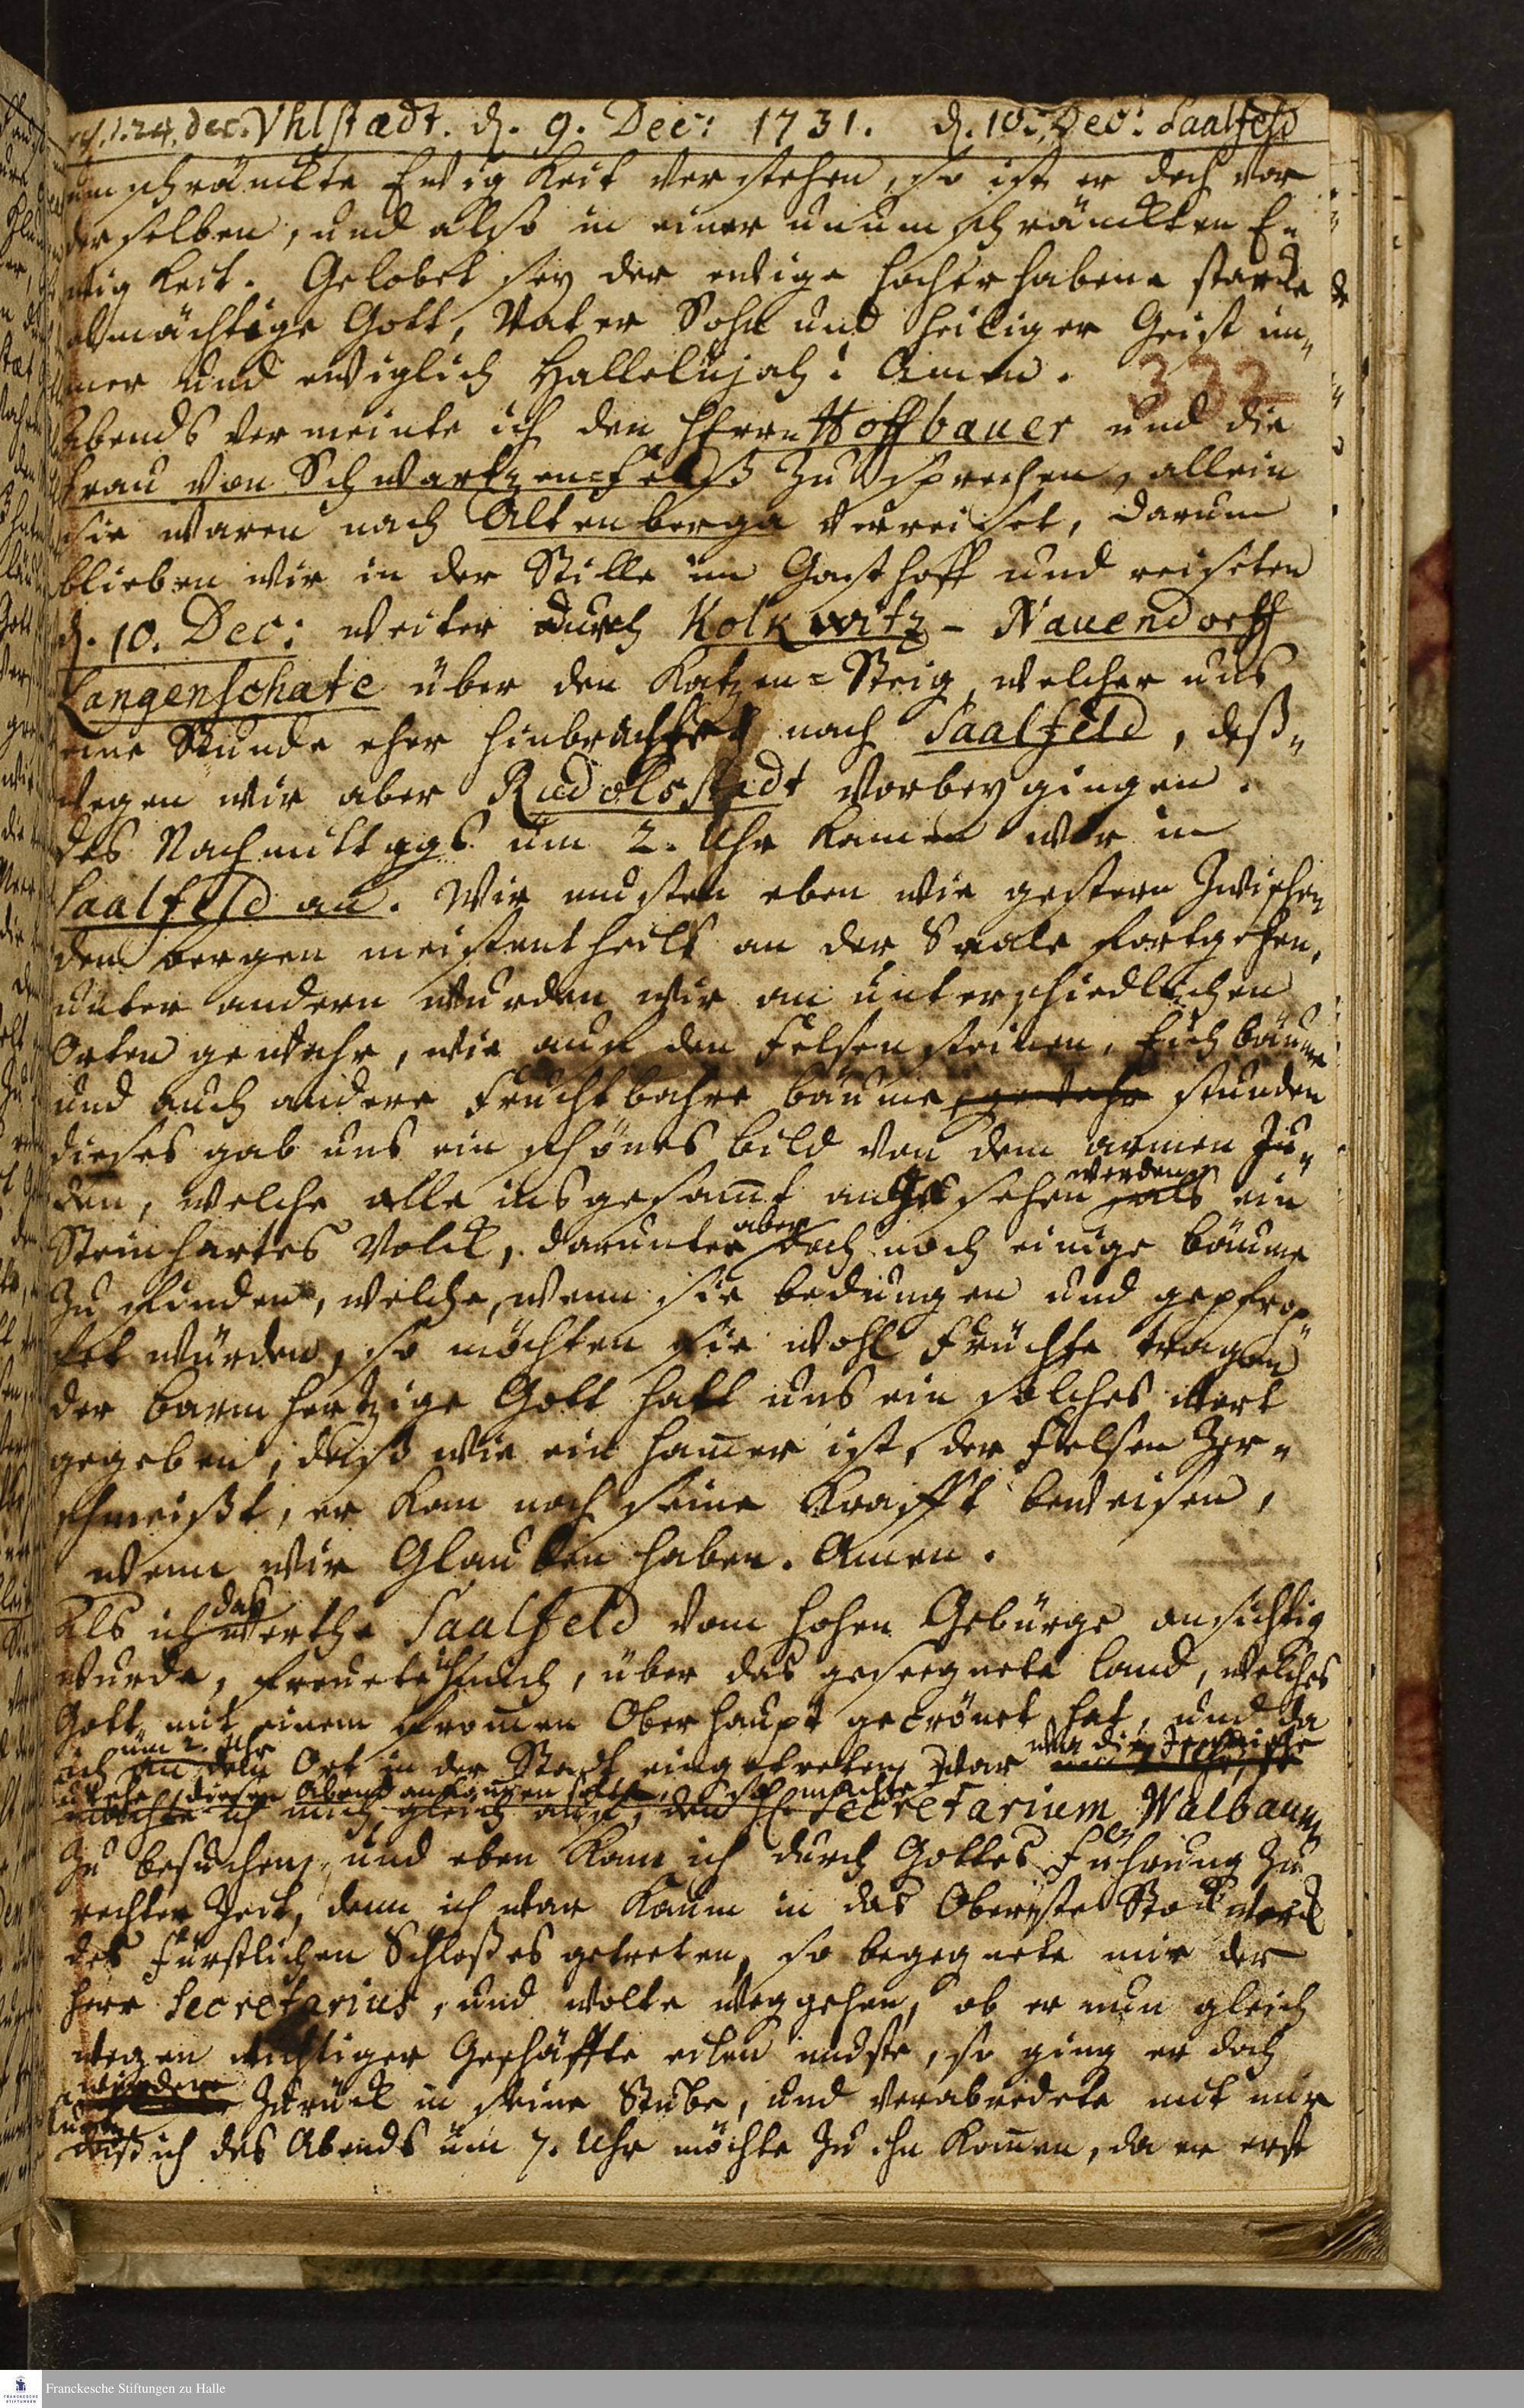 1.24. dec. Vhlstædt. d. 9. Dec: 1731. d. 10. Dec: Saalfeld
umschränckte Ewigkeit verstehen, so ist er doch vor
derselben, und also in einer unumschränckten E-
wigkeit. Gelobet sey der ewige hocherhabene starcke
allmächtige Gott, Vater Sohn und Heiliger Geist im-
mer und ewiglich Hallelujah! Amen.
332
Abends vermeinte ich den Herrn Hoffbauer und die
Frau von Schwartzenfelß zu sprechen, allein
sie waren nach Altenberga verreiset, darum
blieben wir in der Stille im Gasthoff und reiseten
d. 10. Dec: weiter durch Kolkwitz - Nauendorff
Langenschate über den Katzen-Steig, welcher uns
eine Stunde eher hinbrachte nach Saalfeld, deß-
wegen wir aber Rudolsstadt vorbeygingen.
Des Nachmittags um 2. Uhr kamen wir in
Saalfeld an. Wir musten eben wie gestern zwischen
den bergen meistentheils an der Saale fortgehen,
unter andern wurden wir an unterschiedlichen
Orten gewahr, wie auf den Felsensteinen, Eichbäume
und auch andere Fruchtbahre bäume gewahr stunden
dieses gab uns ein schönes bild von dem armen Ju-
den, welche alle insgesamt angesehen werden als ein
Steinhartes Volck, darunter aber doch noch einige bäume
zu finden, welche, wenn sie bedungen und gepfrop-
fet würden, so möchten sie wohl Früchte tragen
der barmhertzige Gott hatt uns ein solches Wort
gegeben, daß wie ein Hamer ist, der Felsen zer-
schmeißt, er kan noch seine Krafft beweisen,
wenn wir Glauben haben. Amen.
Als ich das werthe Saalfeld vom hohen Gebürge ansichtig
wurde, freuete ich mich, über das geseegnete land, welches
Gott mit einem fromen Oberhaupt gecrönet hat, und da
ich um 2. Uhr an dem Ort in der Stadt eingetreten war
diesen Abend anfangen solte, machte
ich mich gleich auf, den H. Secretarium Walbaum
zu besuchen, und eben kam ich durch Gottes Führung zu
rechter Zeit, denn ich war kaum in das Oberste Stockwerck
des Fürstlichen Schloßes getreten, so begegnete mir der
Herr Secretarius, und wolte weggehen, ob er nun gleich
wegen wichtiger Geschäffte eilen muste, so ging er doch
wieder zurück in seine Stube, und verabredete mit mir
daß ich des Abends um 7. Uhr möchte zu ihn komen, da er erst
Franckesche Stiftungen zu Halle